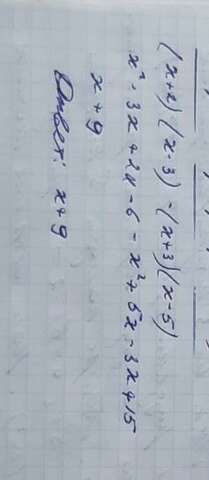 (x+2)(x-3)-(x+3)(x-5)
x²-3x+2x-6-x²+5x-3x+15
x+9
Ответ: x+9